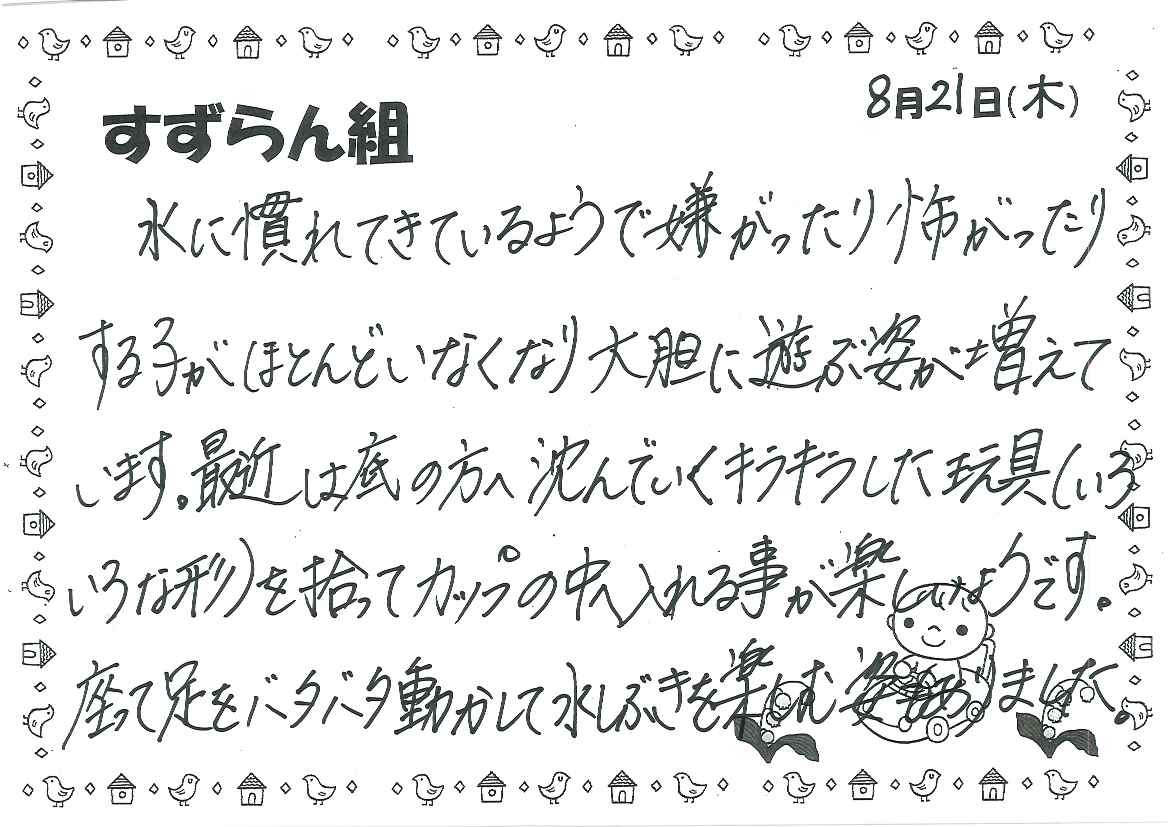 8月21日(木)
すずらん組
水に慣れてきているようで嫌がったり怖がったり
する子がほとんどいなくなり大胆に遊ぶ姿が増えて
います。最近は底の方へ沈んでいくキラキラした玩具(いろ
いろな形)を拾ってカップの中へ入れる事が楽しいようです。
座って足をバタバタ動かして水しぶきを楽しむ姿もありました。